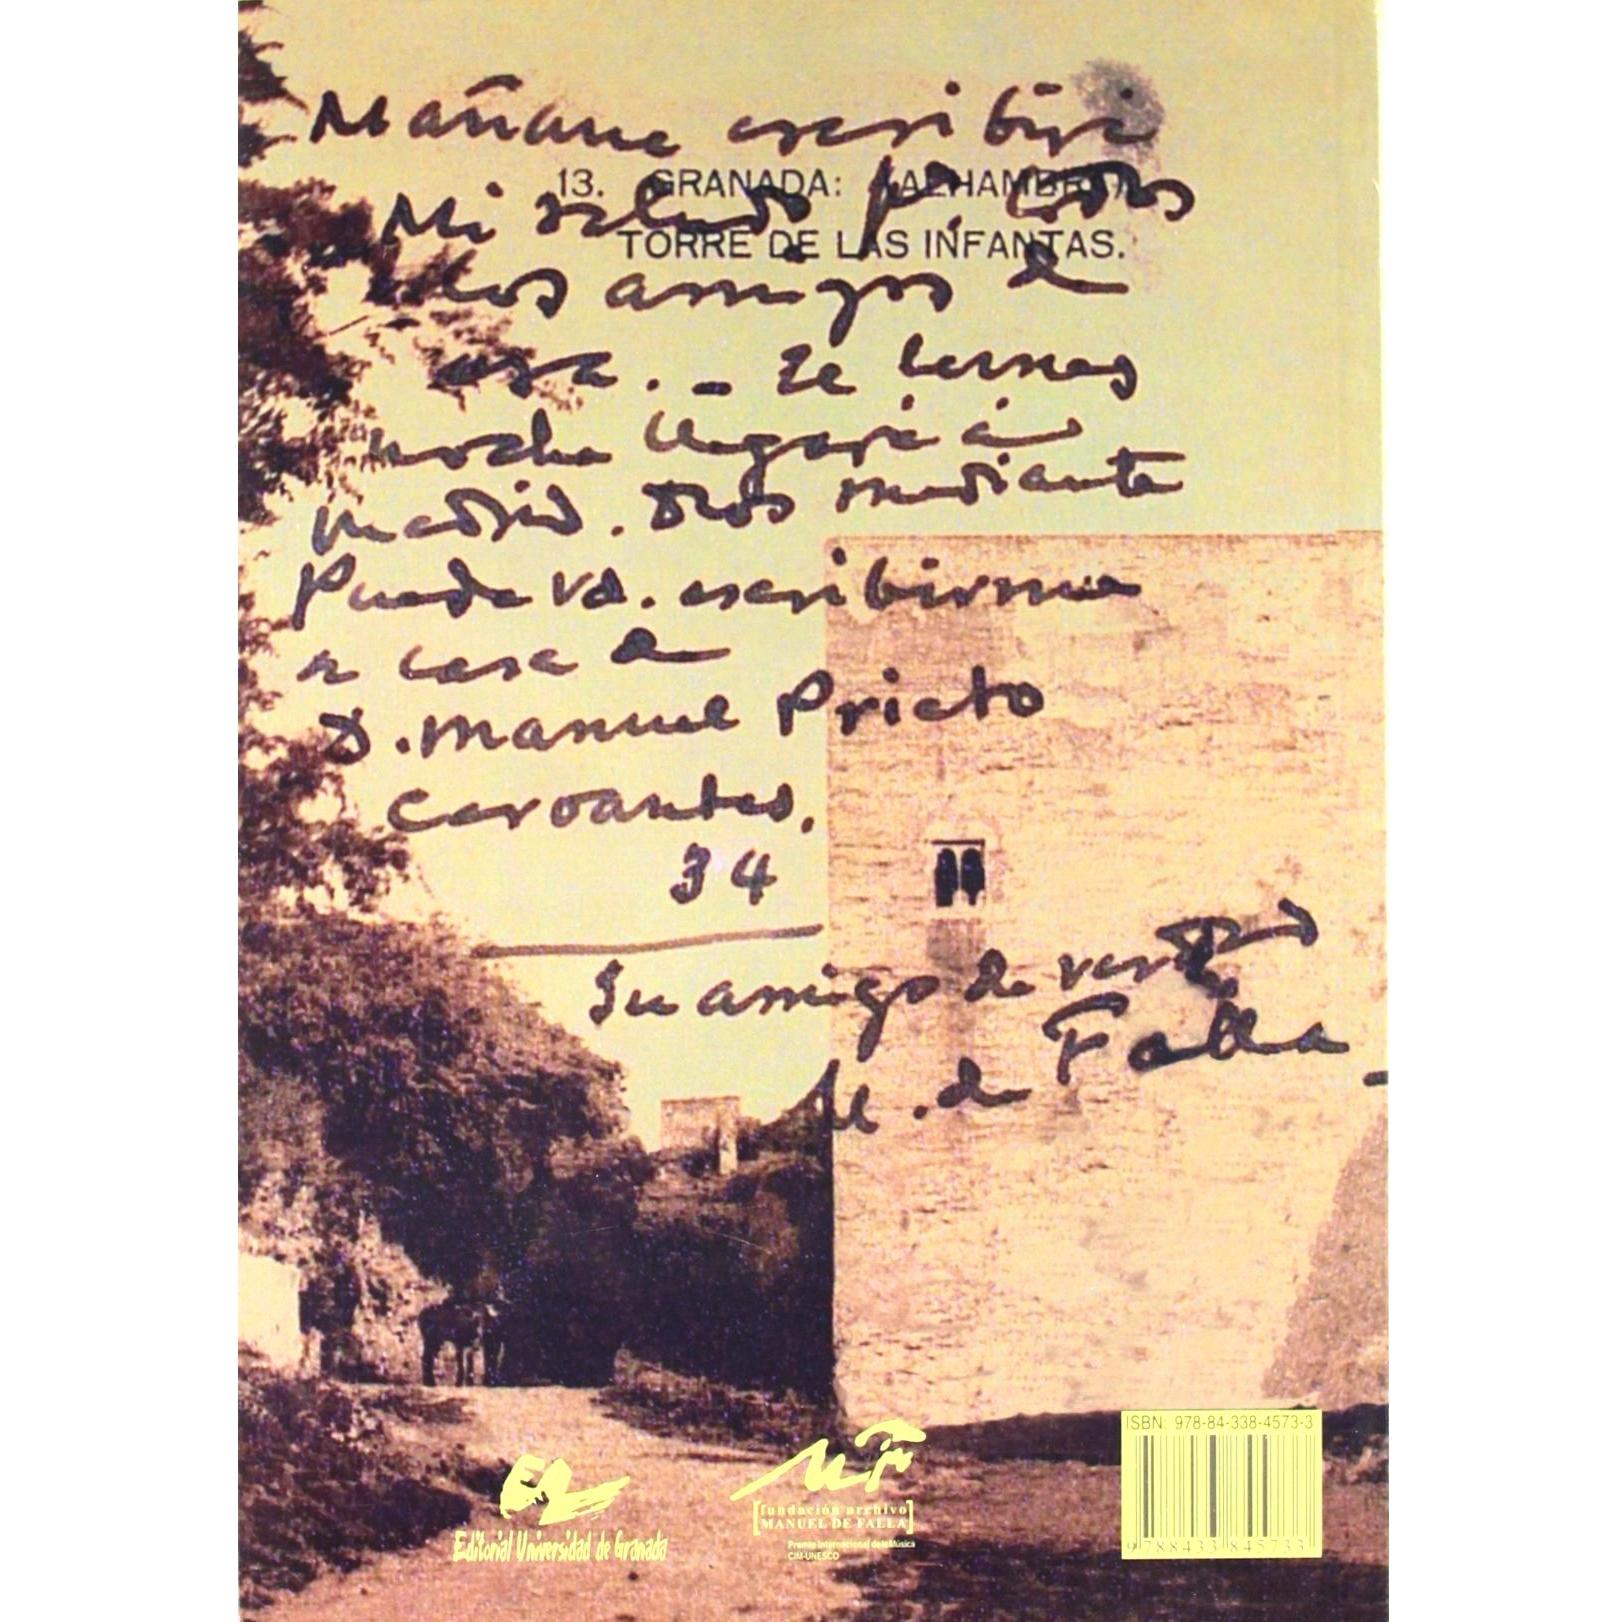 Mañana escribiré
13. GRANADA: ALHAMBRA.
Mi saludo pª. todos
TORRE DE LAS INFANTAS.
los amigos de
esa. - El viernes
noche llegaré á
Madrid. Dios mediante
Puede Vd. escribirme
a casa de
D. Manuel Prieto
Cervantes,
34
Su amigo de verdad
M. de Falla
ISBN: 978-84-338-4573-3
EUG
Editorial Universidad de Granada
[fundación archivo]
[MANUEL DE FALLA]
Premio Internacional de la Música
CIM-UNESCO
9 788433 845733